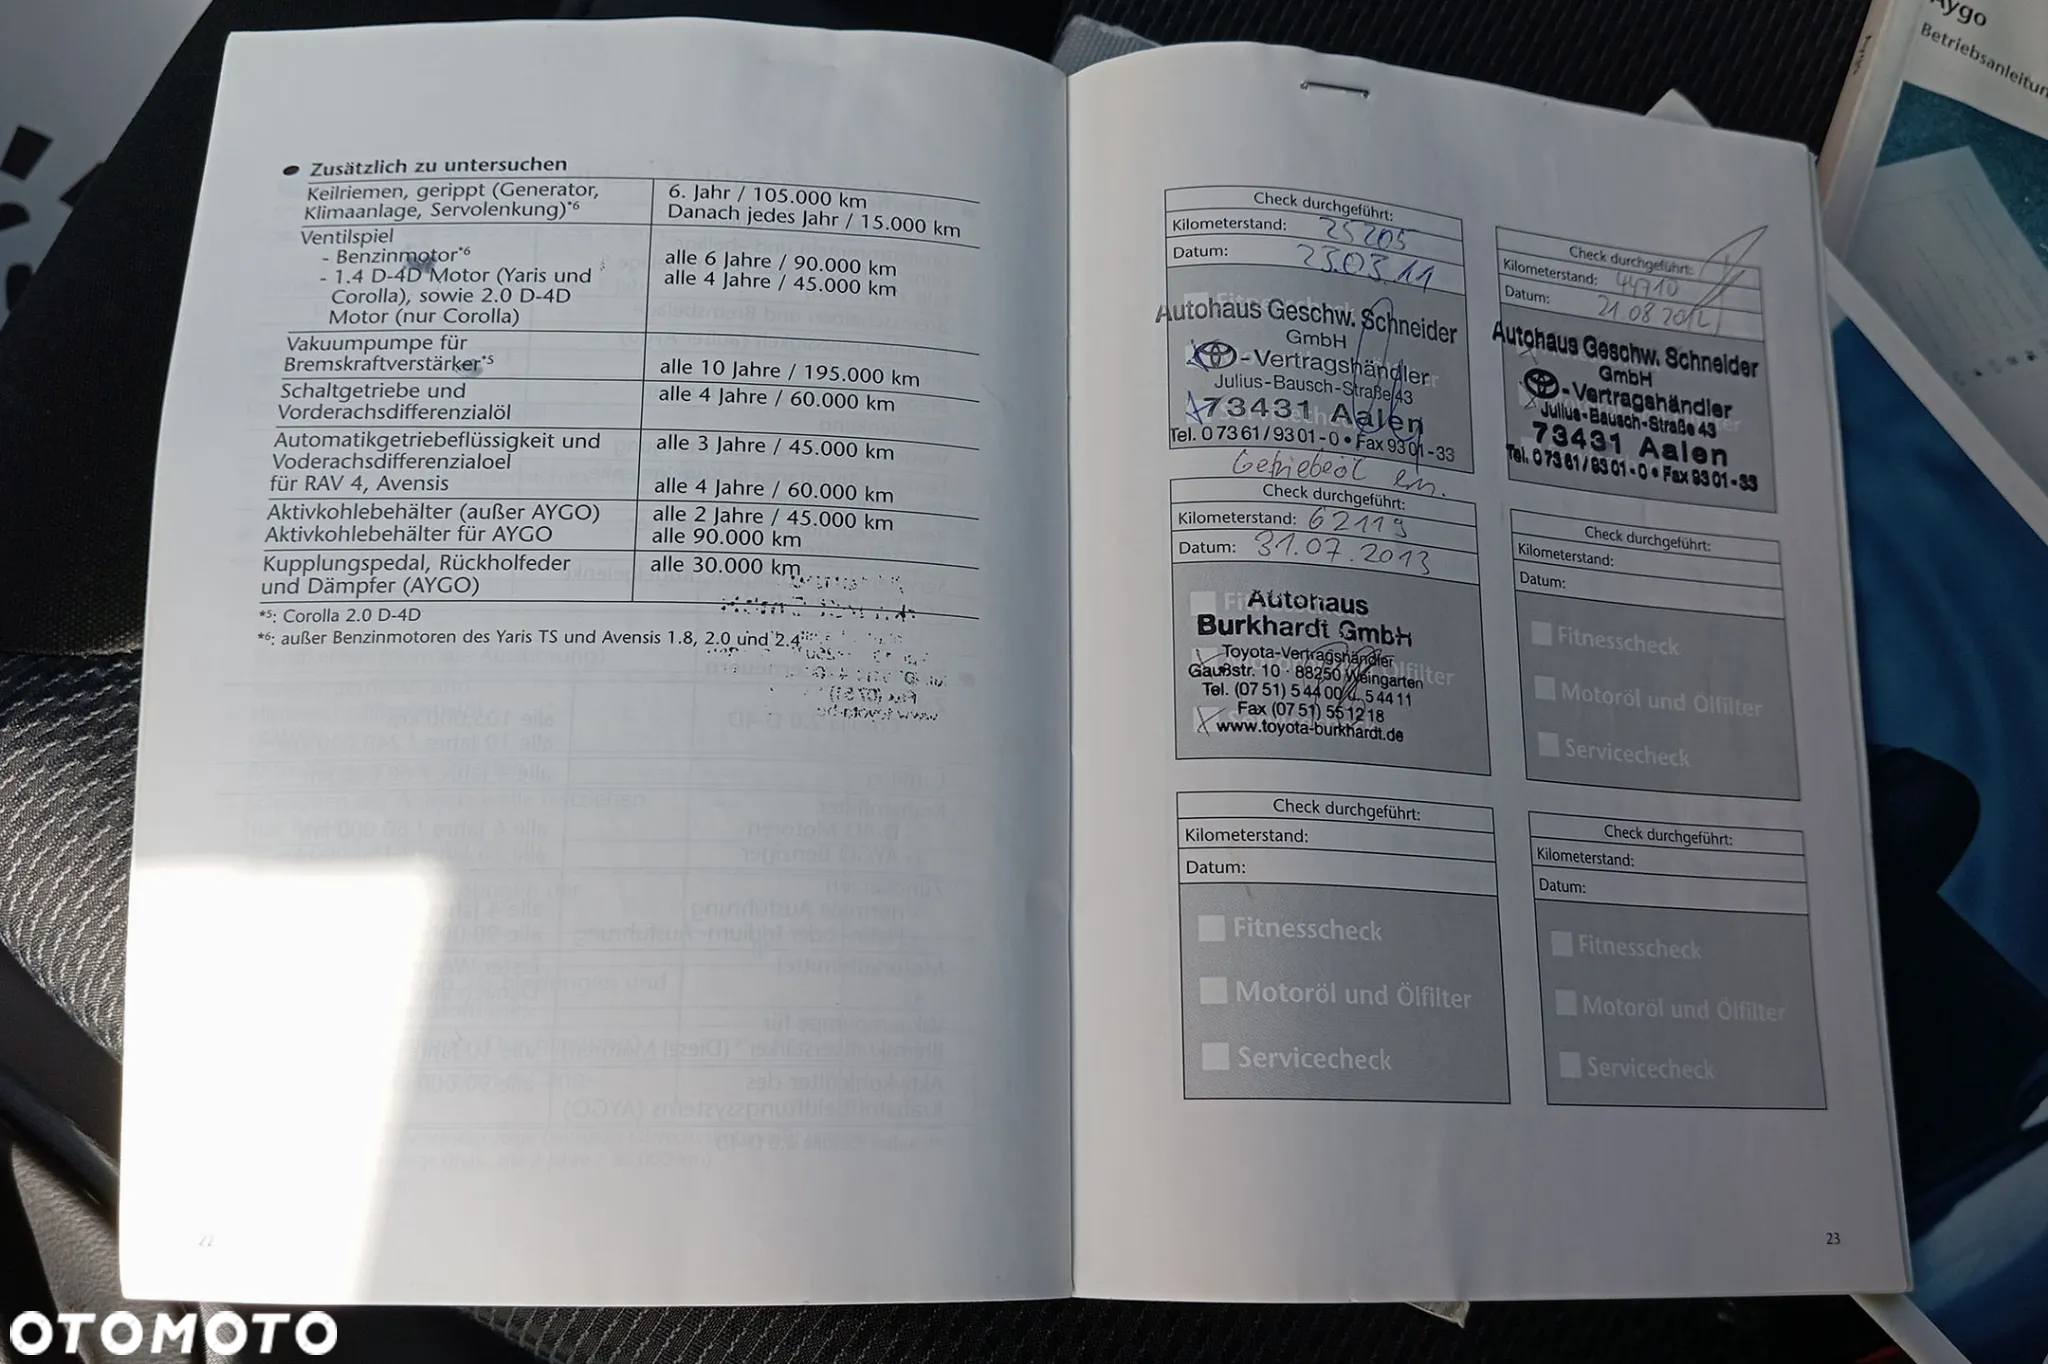 Zusätzlich zu untersuchen
Keilriemen, gerippt (Generator,
Klimaanlage, Servolenkung)*6
6. Jahr / 105.000 km
Danach jedes Jahr / 15.000 km
Ventilspiel
- Benzinmotor*6
- 1.4 D-4D Motor (Yaris und
Corolla), sowie 2.0 D-4D
Motor (nur Corolla)
alle 6 Jahre / 90.000 km
alle 4 Jahre / 45.000 km
Vakuumpumpe für
Bremskraftverstärker*5
alle 10 Jahre / 195.000 km
Schaltgetriebe und
Vorderachsdifferenzialöl
alle 4 Jahre / 60.000 km
Automatikgetriebeflüssigkeit und
Voderachsdifferenzialoel
für RAV 4, Avensis
alle 3 Jahre / 45.000 km
alle 4 Jahre / 60.000 km
Aktivkohlebehälter (außer AYGO)
Aktivkohlebehälter für AYGO
alle 2 Jahre / 45.000 km
alle 90.000 km
Kupplungspedal, Rückholfeder
und Dämpfer (AYGO)
alle 30.000 km
*5: Corolla 2.0 D-4D
*6: außer Benzinmotoren des Yaris TS und Avensis 1.8, 2.0 und 2.4
22
Check durchgeführt:
Kilometerstand: 25205
Datum: 23.03.11
Autohaus Geschw. Schneider
GmbH
-Vertragshändler
Julius-Bausch-Straße 43
73431 Aalen
Tel. 07361/9301-0 • Fax 9301-33
Getriebeöl ern.
Check durchgeführt:
Kilometerstand: 44710
Datum: 21.08.2012
Autohaus Geschw. Schneider
GmbH
-Vertragshändler
Julius-Bausch-Straße 43
73431 Aalen
Tel. 07361/9301-0 • Fax 9301-33
Check durchgeführt:
Kilometerstand: 62119
Datum: 31.07.2013
Autohaus
Burkhardt GmbH
Toyota-Vertragshändler
Gaußstr. 10 · 88250 Weingarten
Tel. (07 51) 5 44 00 5 44 11
Fax (07 51) 55 12 18
www.toyota-burkhardt.de
Check durchgeführt:
Kilometerstand:
Datum:
Fitnesscheck
Motoröl und Ölfilter
Servicecheck
Check durchgeführt:
Kilometerstand:
Datum:
Fitnesscheck
Motoröl und Ölfilter
Servicecheck
Check durchgeführt:
Kilometerstand:
Datum:
Fitnesscheck
Motoröl und Ölfilter
Servicecheck
23
Aygo
Betriebsanleitun
OTOMOTO